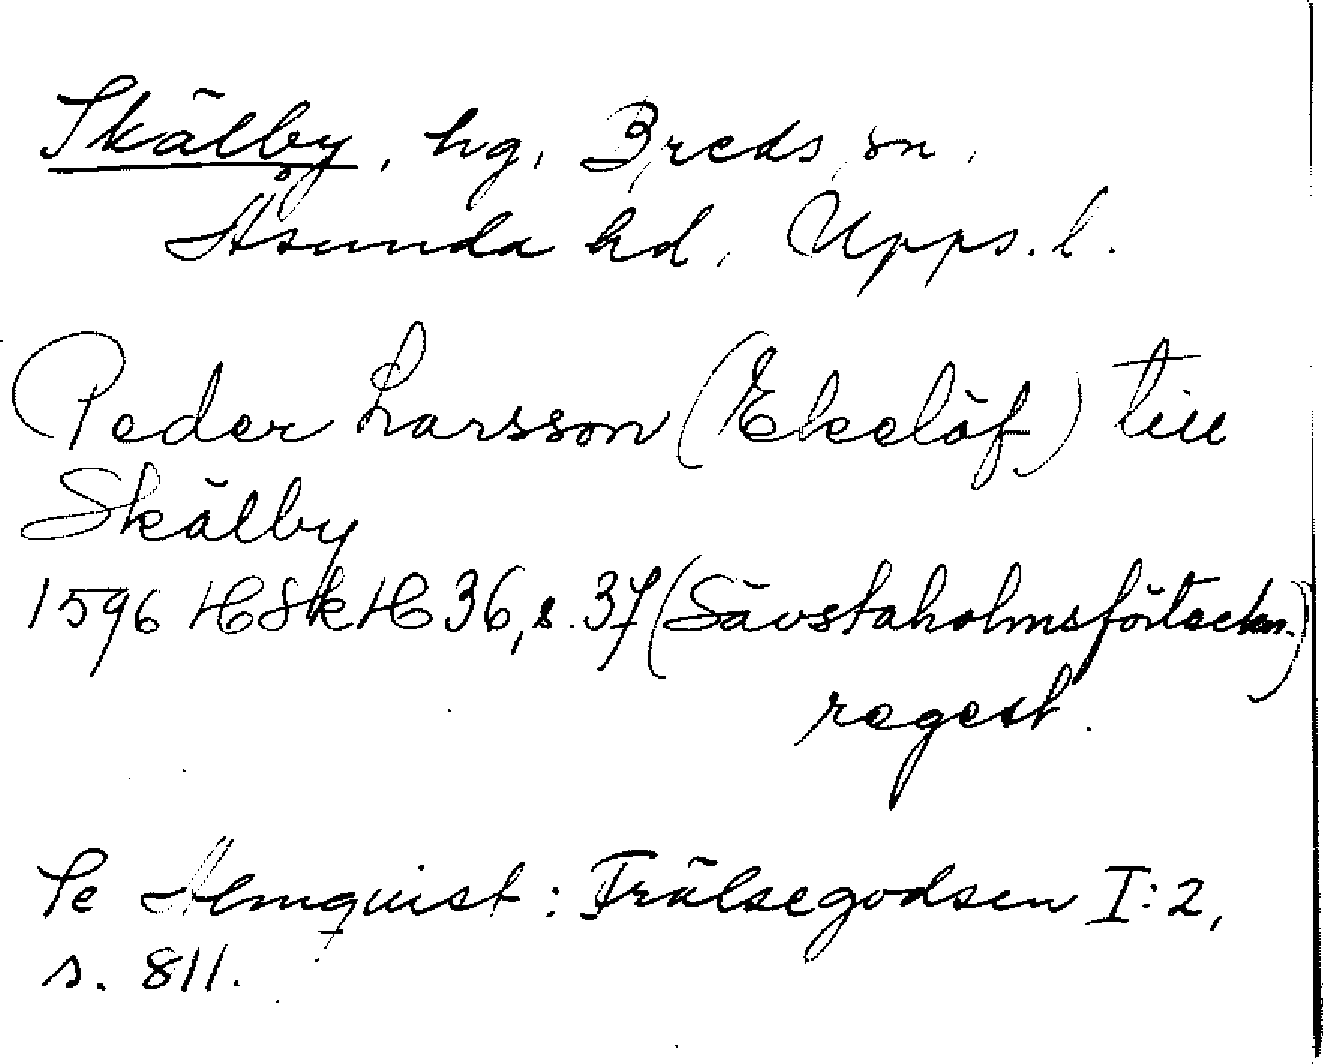 Skälby, hg, Breds sn,
Åsunda hd, Upps. l.
Peder Larsson (Ekelöf) till
Skälby
1596 HSkH 36, s. 37 (Sävstaholmsförteckn.)
regest.
Se Almquist: Frälsegodsen I:2,
s. 811.